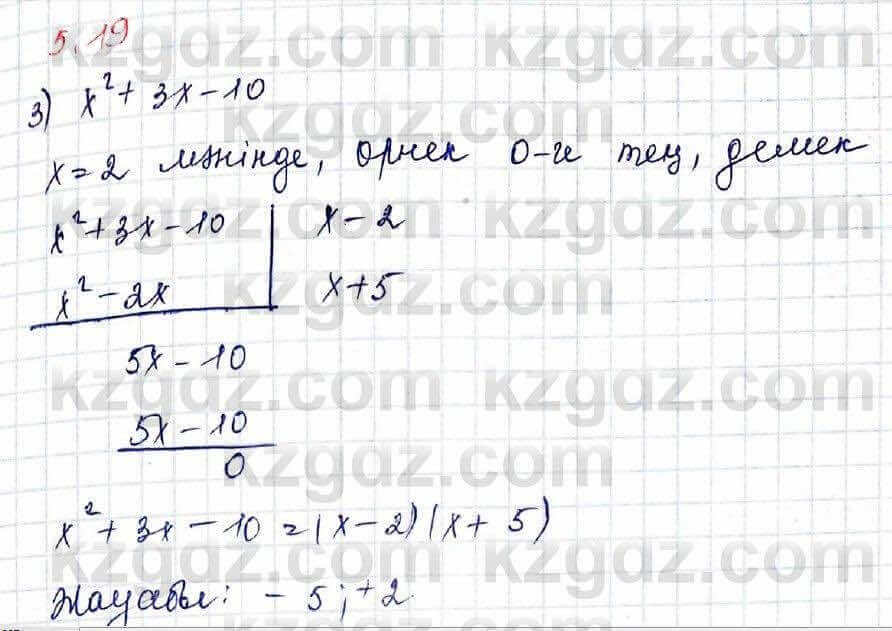 5.19
3) x² + 3x - 10
x = 2 мәнінде, өрнек 0-ге тең, демек
x² + 3x - 10 | x - 2
x² - 2x | x + 5
5x - 10
5x - 10
0
x² + 3x - 10 = (x - 2)(x + 5)
Жауабы: - 5; +2
kzgdz.com